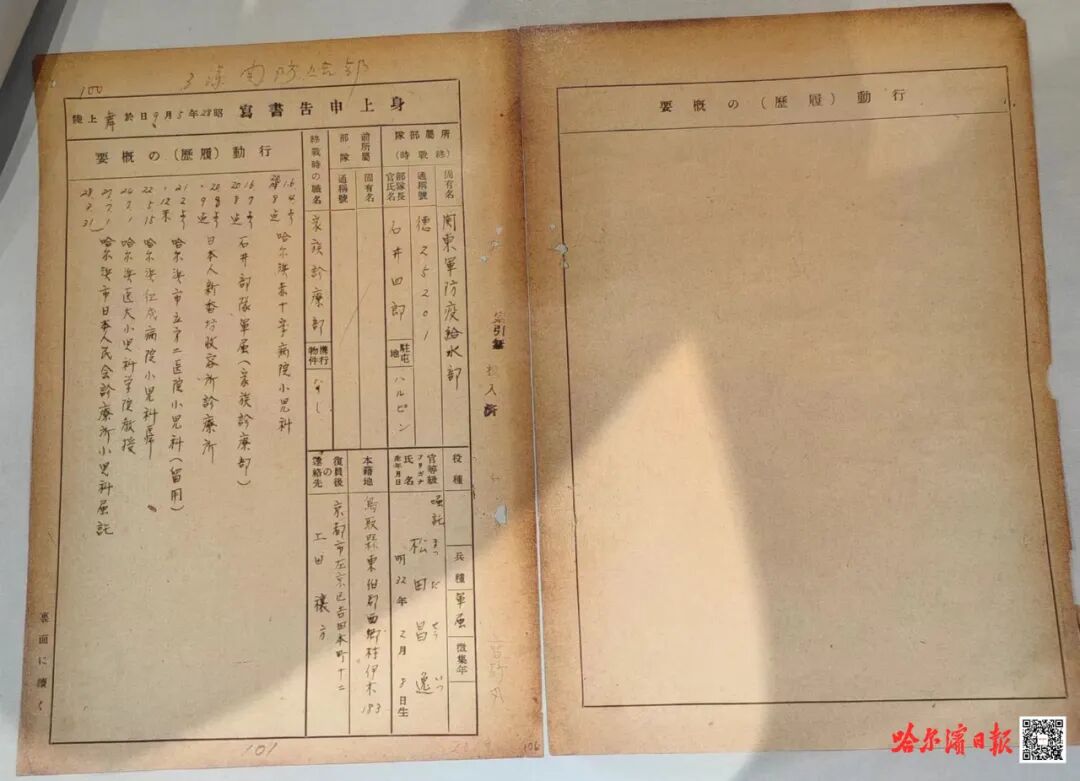 100
身上申告書寫 昭28年5月9日於舞上陸
所屬部隊(終戰時)
固有名 関東軍防疫給水部
通稱號 德25201
部隊長官氏名 石井四郎
駐屯地 ハルピン
前所屬部隊
固有名
通稱號
終戰時の職名 家族診療部
携行物件 なし
役種
兵種 軍属
徴集年
官等級 嘱託
フリガナ まつだ せう いつ
氏名 松田昌逸
生年月日 明32年2月8日生
本籍地 鳥取縣東伯郡西郷村伊木183
復員後の連絡先 京都市左京区吉田本町十二
上田穰方
行動(履歴)の概要
16.4より 8迄 哈尔浜赤十字病院小児科
16.7より 20.8迄 石井部隊軍属(家族診療部)
20.8より 9迄 日本人新香坊收容所診療所
21.2より 12末 哈尔浜市立第二医院小児科(留用)
22.5.15 哈尔浜仁成病院小児科医師
24.7.1 哈尔浜医大小児科学院教授
27.7.1
28.3.31 哈尔浜市日本人民会診療所小児科属託
裏面に續く
101
索引
行動(履歴)の概要
106
哈尔滨日报